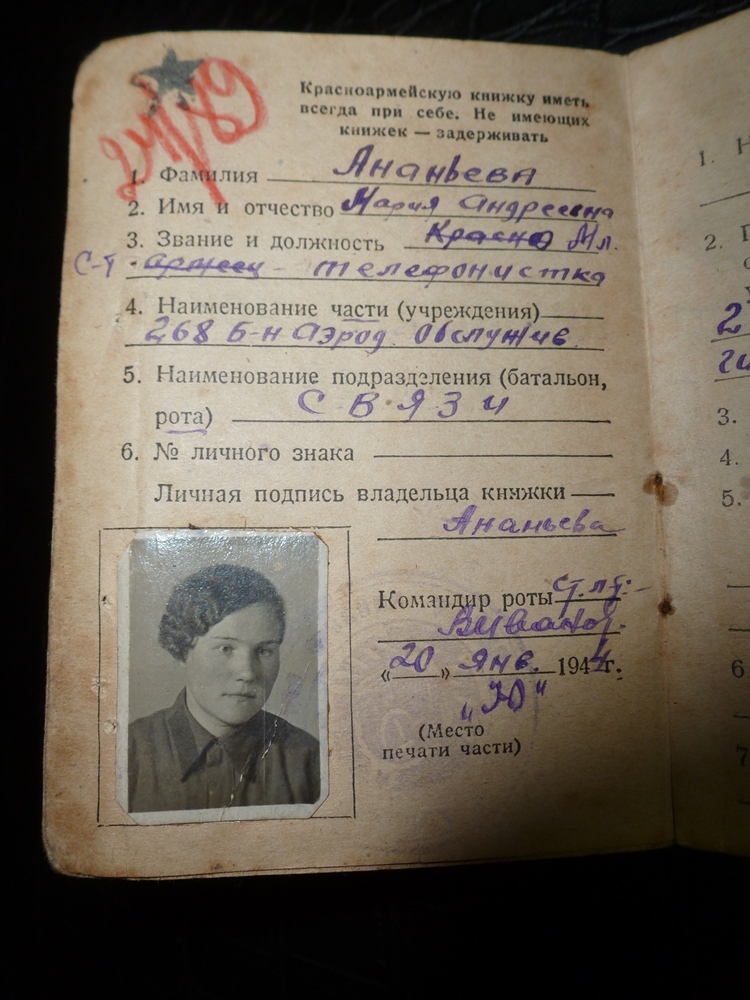 24/89
Красноармейскую книжку иметь
всегда при себе. Не имеющих
книжек — задерживать
1. Фамилия Ананьева
2. Имя и отчество Мария Андреевна
3. Звание и должность Красно Мл.
С-т армеец - телефонистка
4. Наименование части (учреждения)
268 Б-н Аэрод. Обслужив.
5. Наименование подразделения (батальон,
рота) Связи
6. № личного знака
Личная подпись владельца книжки
Ананьева
Командир роты ст. лт.
«20» янв. 1944 г.
(Место
печати части)
1.
2.
2
3.
4.
5.
6
7